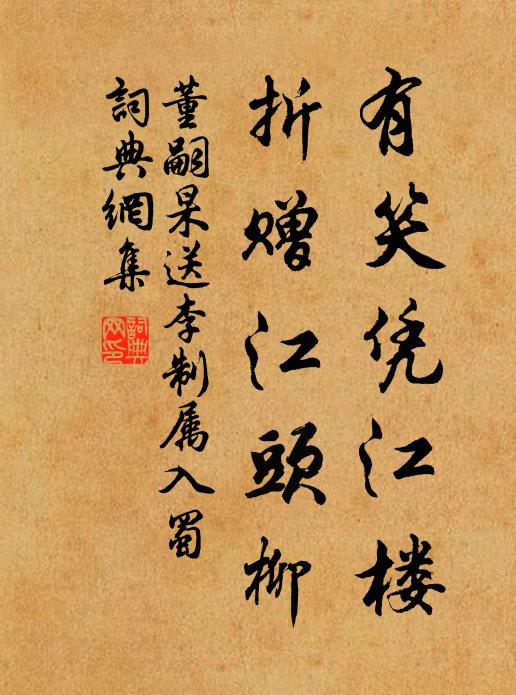 有笑凭江楼
折赠江頭柳
董嗣杲送李制属入蜀
詞典網集
詞典網印